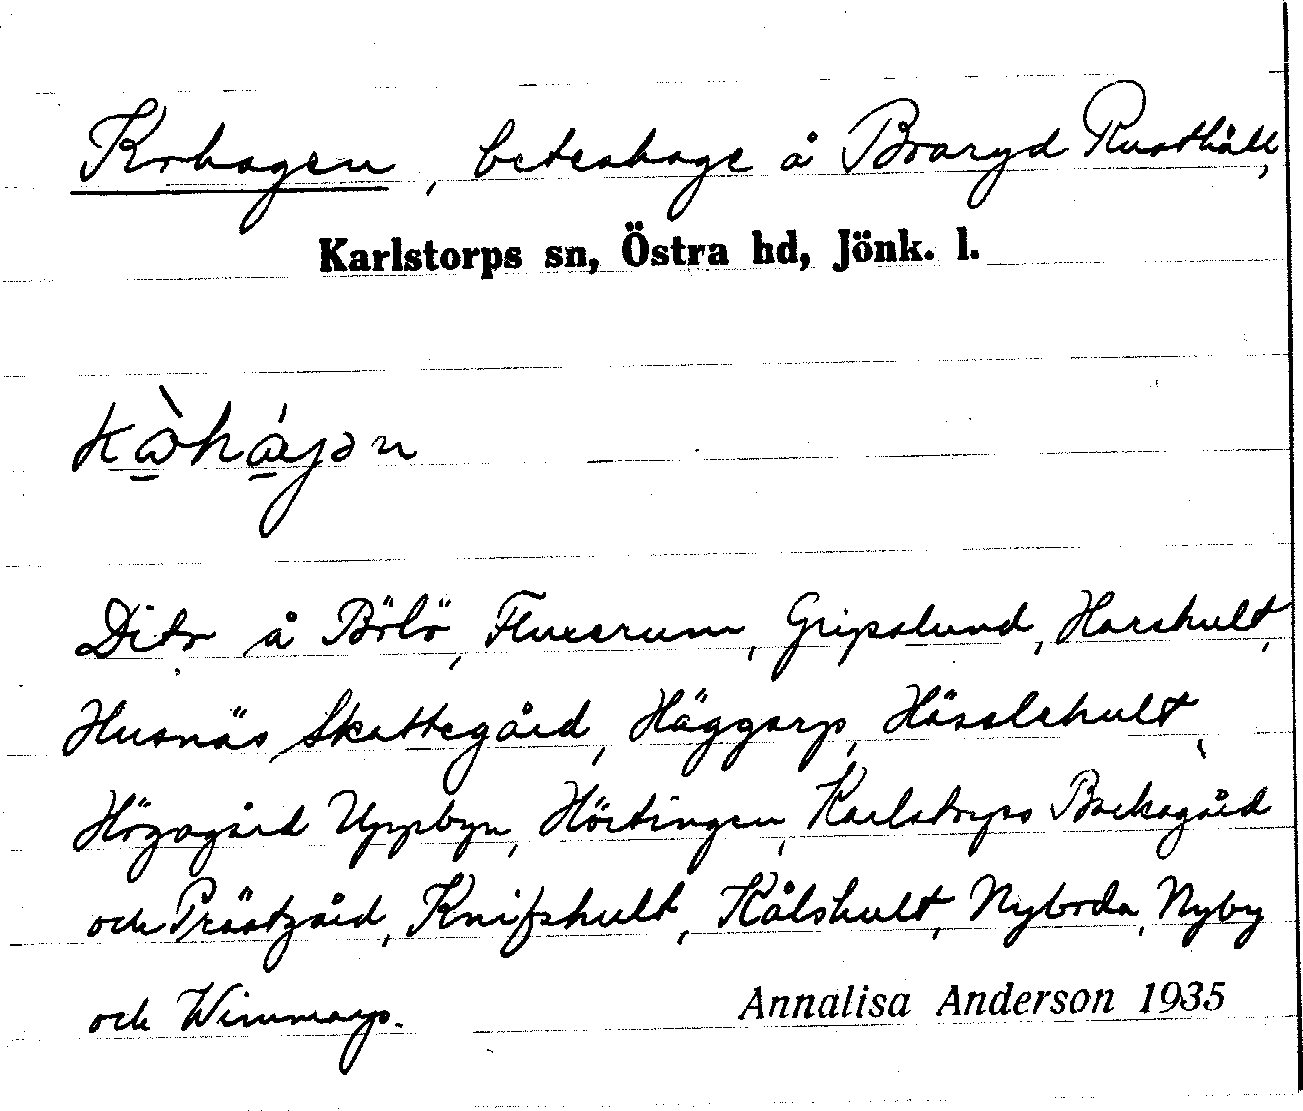 Kohagen, beteshage å Braryd Rusthåll,
Karlstorps sn, Östra hd, Jönk. l.
Dito å Bölö, Fluxerum, Gripslund, Harshult,
Husnäs Skattegård, Häggarp, Hässlehult,
Högagård Uppbyn, Hörtingen, Karlstorps Backagård
och Prästgård, Knifshult, Kålshult, Nyboda, Nyby
och Wimmarp.
Annalisa Anderson 1935